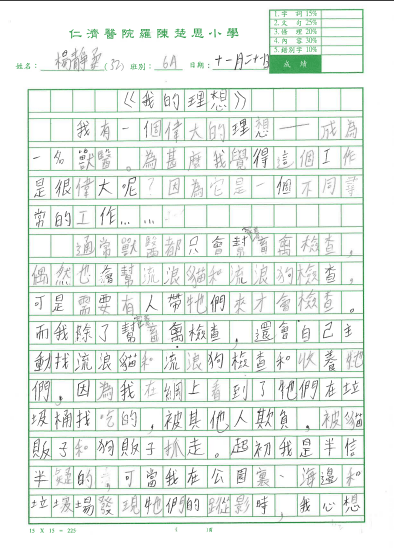 1. 字詞 15%
2. 文句 25%
3. 條理 20%
4. 內容 30%
5. 錯別字 10%
成績
仁濟醫院羅陳楚思小學
姓名： 楊靜 (32) 班別： 6A 日期： 十一月二十
《我的理想》
我有一個偉大的理想——成為
一名獸醫。為甚麼我覺得這個工作
是很偉大呢？因為它是一個不同尋
常的工作……
通常獸醫都只會幫寵物檢查，
偶然也會幫流浪貓和流浪狗檢查。
可是需要有人帶牠們來才會檢查。
而我除了幫寵物檢查，還會自己主
動找流浪貓和流浪狗檢查和收養牠
們。因為我在網上看到了牠們在垃
圾桶找吃的，被其他人欺負，被貓
販子和狗販子抓走。起初我是半信
半疑的，可當我在公園裏、海邊和
垃圾場發現牠們的蹤影時，我心想
15 X 15 = 225